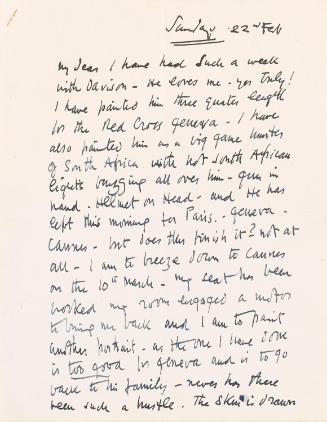 Sunday 22nd Feb
My dear I have had such a week
with Davison - He loves me - yes truly!
I have painted him three quater length
for the Red Cross Geneva - I have
also painted him as a big game hunter
of South Africa with hot South African
lights bugging all over him - gun in
hand - Helmet on Head - and He has
left this morning for Paris - Geneva -
Cannes - but does this finish it? not at
all - I am to breeze down to Cannes
on the 10th March - my seat has been
booked my room engaged a motor
to bring me back and I am to paint
another portrait - as the one I have done
is too good for Geneva and is to go
back to his family - never has there
been such a hustle. The skin is drawn